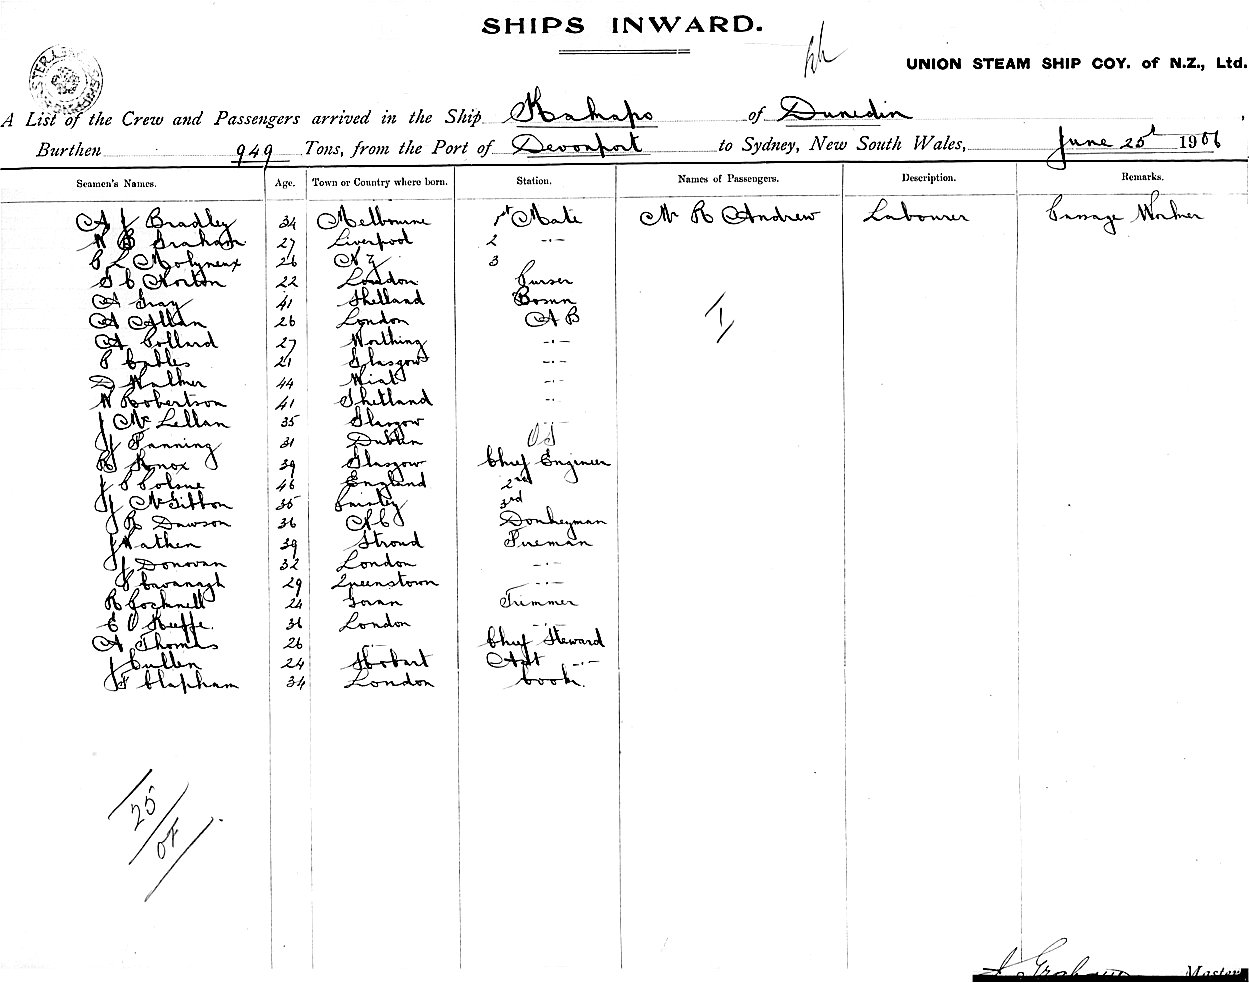 SHIPS INWARD.
UNION STEAM SHIP COY. of N.Z., Ltd.
A List of the Crew and Passengers arrived in the Ship Kakapo of Dunedin,
Burthen 949 Tons, from the Port of Devonport to Sydney, New South Wales, June 25th 1906
Seamen's Names. Age. Town or Country where born. Station. Names of Passengers. Description. Remarks.
A J Bradley 34 Melbourne 1st Mate Mr R Andrew Labourer Passage Worker
W B Graham 27 Liverpool 2 -·-
P L Molyneux 26 N Z 3
S C Norton 22 London Purser
A Gray 41 Shetland Bosun
A Allan 26 London A B
A Pollard 27 Worthing -·-
P Cables 21 Glasgow -·-
D Walker 44 -·-
W Robertson 41 Shetland -·-
J McLellan 35 Glasgow
J Fanning 31 Dublin O S
R Knox 39 Glasgow Chief Engineer
J P 46 England 2nd
J McGibbon 35 Paisley 3rd
J R Dawson 36 Donkeyman
J Wathen 39 Stroud Fireman
J Donovan 32 London -·-
P Cavanagh 29 Queenstown -·-
R Cocknell 24 Govan Trimmer
E O'Keeffe 36 London -·-
A Thomas 26 -·- Chief Steward
J Cullen 24 Hobart Asst -·-
F Clapham 34 London Cook.
1
25
Graham Master